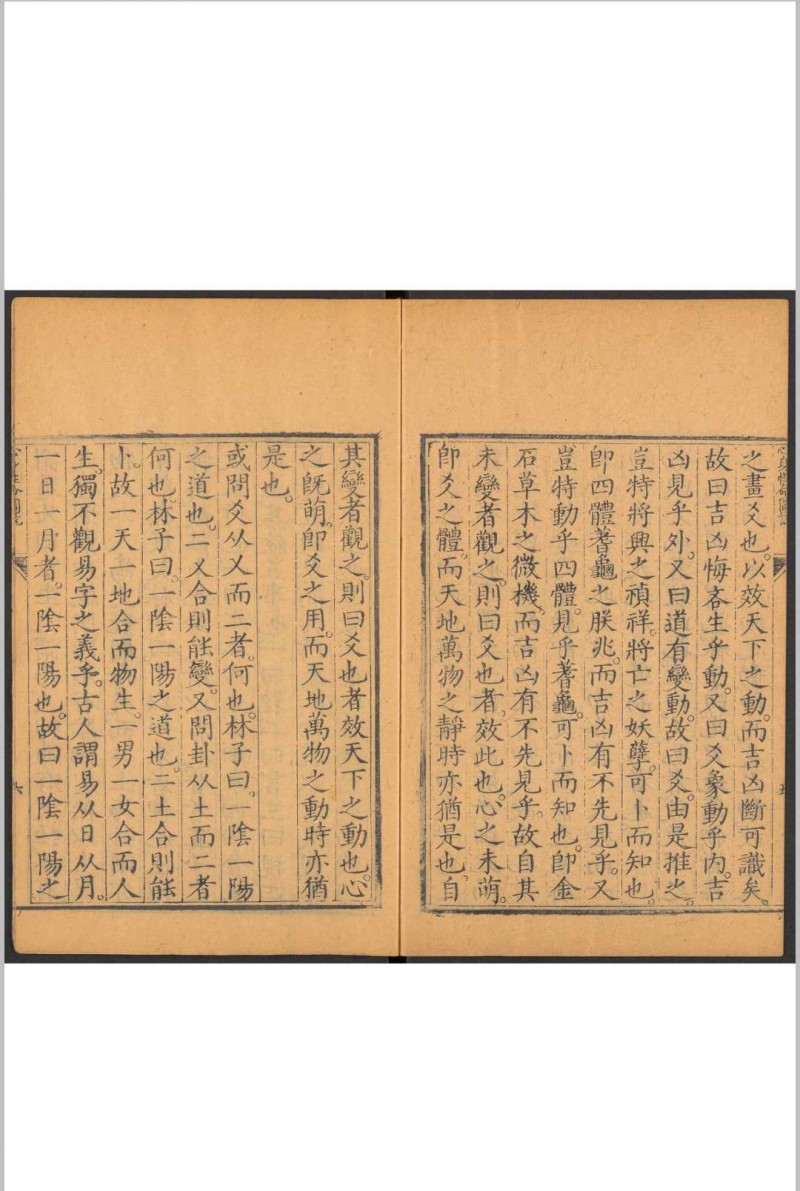 之畫爻也。以效天下之動。而吉凶斷可識矣。
故曰吉凶悔吝生乎動。又曰爻象動乎内。吉
凶見乎外。又曰道有變動。故曰爻。由是推之。
豈特將興之禎祥。將亡之妖孽。可卜而知也。
卽四體蓍龜之朕兆。而吉凶有不先見乎。又
豈特動乎四體。見乎蓍龜。可卜而知也。卽金
石草木之微機。而吉凶有不先見乎。故自其
未變者觀之。則曰爻也者效此也。心之未萌。
卽爻之體。而天地萬物之靜時亦猶是也。自
其變者觀之。則曰爻也者效天下之動也。心
之旣萌。卽爻之用。而天地萬物之動時亦猶
是也。
或問爻从乂而二者。何也。林子曰。一陰一陽
之道也。二乂合則能變。又問卦从土而二者
何也。林子曰。一陰一陽之道也。二土合則能
卜。故一天一地合而物生。一男一女合而人
生。獨不觀易字之義乎。古人謂易从日从月。
一日一月者。一陰一陽也。故曰一陰一陽之
六